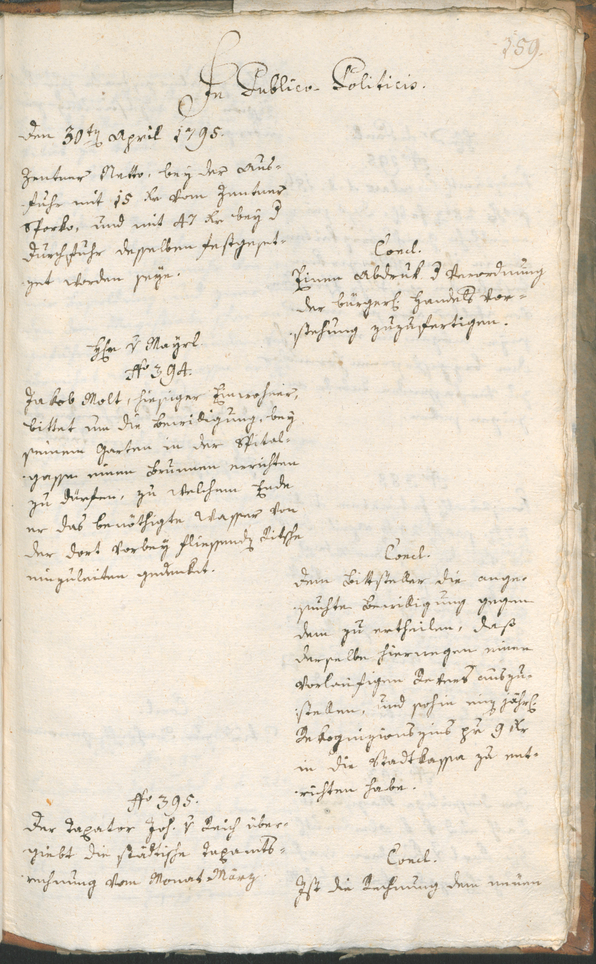 359.
In Publico-Politicis.
den 30ten April 1795.
Zentner Netto, bey der Aus-
fuhr mit 15 kr vom Zentner
Sporko, und mit 47 kr bey d
durchfuhr desselben festgeset-
zet worden seye.
Concl.
Einen Abdruk d Verordnung
der bürgerl Handels Vor-
stehung zuzufertigen.
H v Mayrl
No 394.
Jakob Molt, hiesiger Einwohner,
bittet um die Bewilligung, bey
seinem Garten in der Spital-
gasse einen Brunnen errichten
zu dürfen, zu welchem Ende
er das benöthigte Wasser von
der dort vorbey fliessenden Ritsche
einzuleiten gedenket.
Concl.
dem Bittsteller die ange-
suchte Bewilligung gegen
dem zu ertheilen, daß
derselbe hierwegen einen
vorläufigen Revers auszu-
stellen, und sohin einen jährl
Rekognizionszins pr 9 kr
in die Stadtkassa zu ent-
richten habe.
No 395.
Der Taxator Joh. v Reich über-
giebt die städtische Taxamts-
rechnung vom Monat März
Concl.
Ist die Rechnung dem neuen